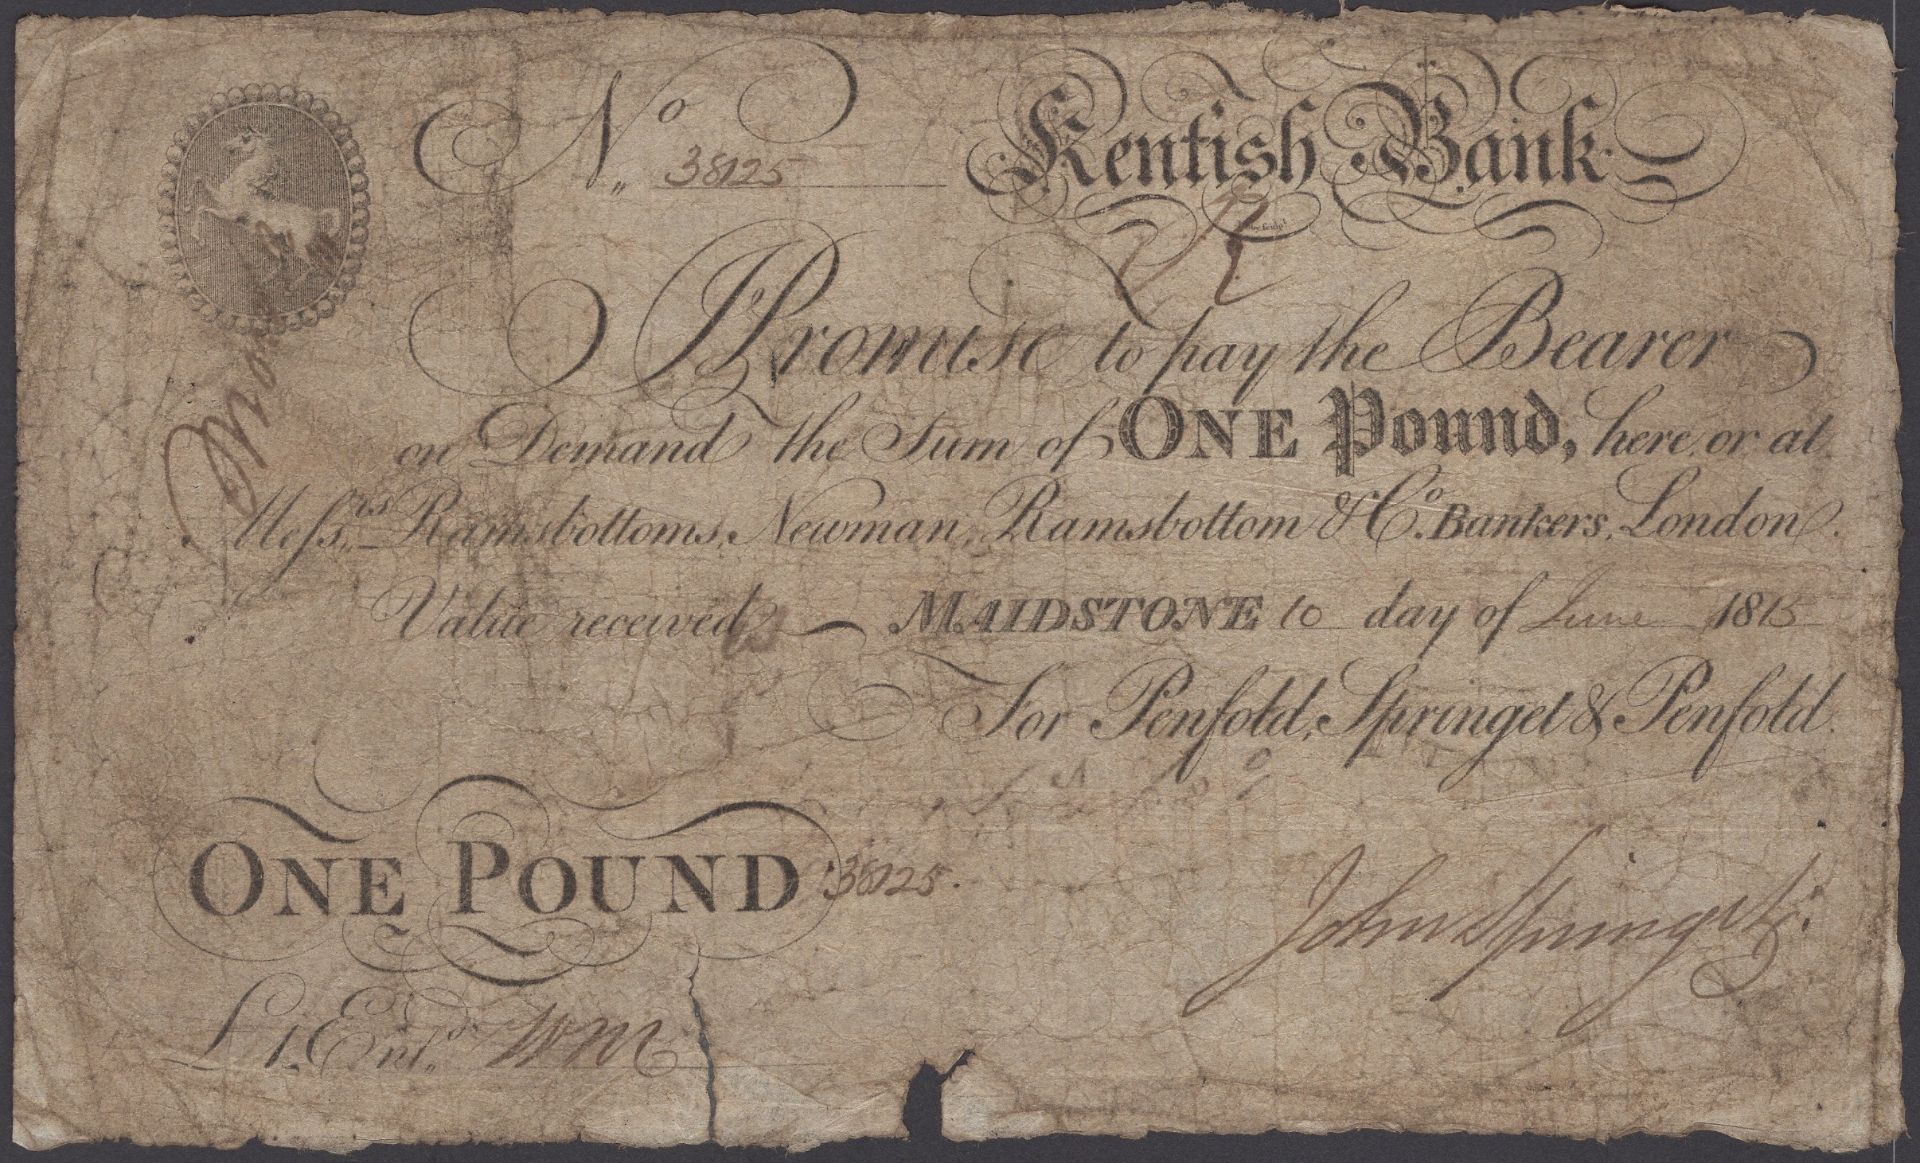 No. 38125 Kentish Bank
I Promise to pay the Bearer
on Demand the Sum of ONE Pound, here or at
Messrs. Ramsbottoms, Newman, Ramsbottom & Co. Bankers, London.
Value received MAIDSTONE 10 day of June 1815
For Penfold, Springet & Penfold.
ONE POUND 38125.
John Springet
£1. Entd.